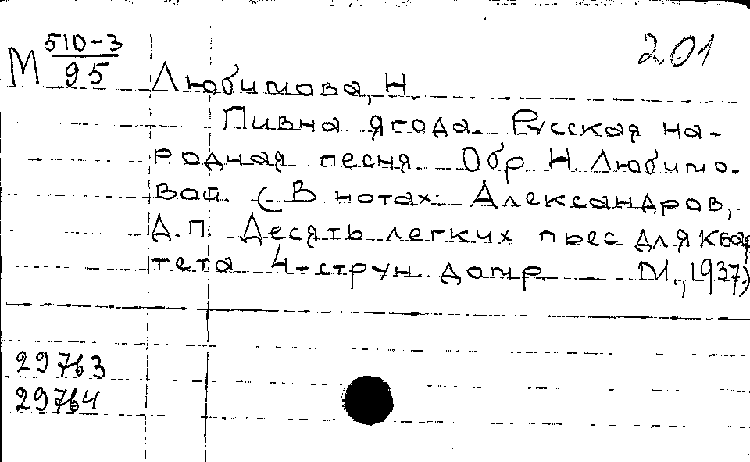 М 510-3
95
201
Любимова, Н.
Пивна ягода. Русская на-
родная песня. Обр. Н. Любимо-
вой. (В нотах: Александров,
А.П. Десять легких пьес для квар
тета 4-струн. домр М., 1937.)
29763
29764